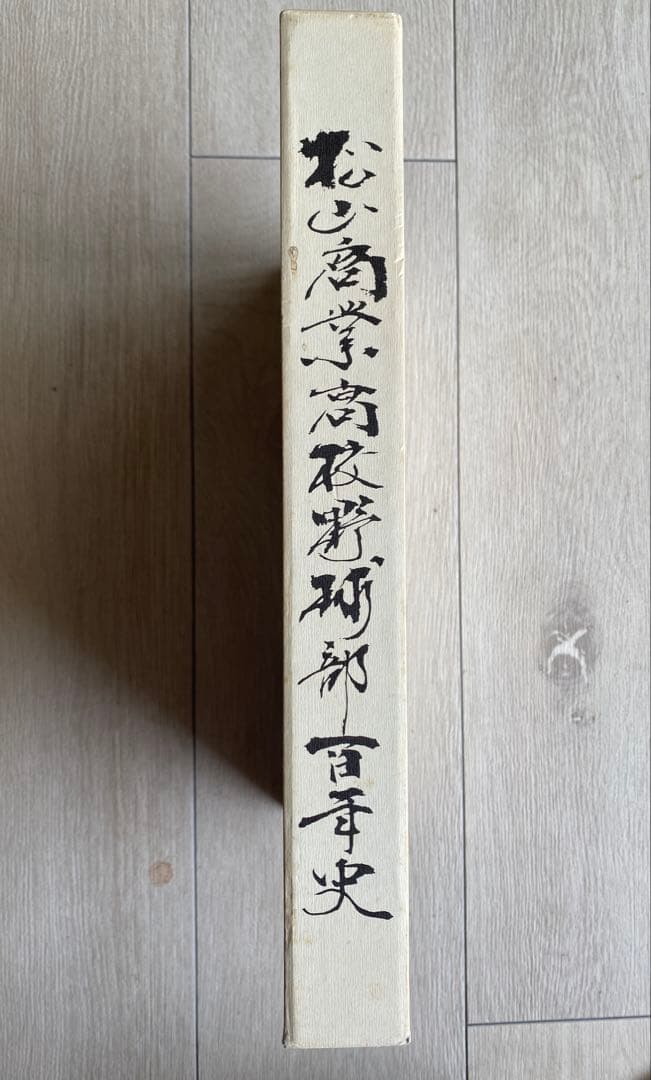 松山商業高校野球部百年史